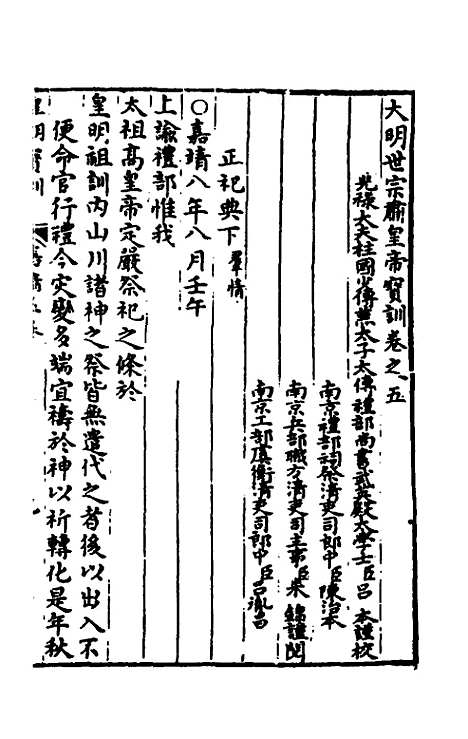 大明世宗肅皇帝寶訓卷之五
光祿大夫柱國少傅兼太子太傅禮部尚書武英殿大學士臣呂本謹校
南京禮部祠祭清吏司郎中臣陳治本
南京兵部職方清吏司主事臣朱錦謹閱
南京工部虞衡清吏司郎中臣呂胤昌
正祀典下 羣情
○嘉靖八年八月壬午
上諭禮部惟我
太祖高皇帝定嚴祭祀之條於
皇明祖訓內山川諸神之祭皆無遣代之者後以出入不
便命官行禮今灾變多端宜禱於神以祈轉化是年秋